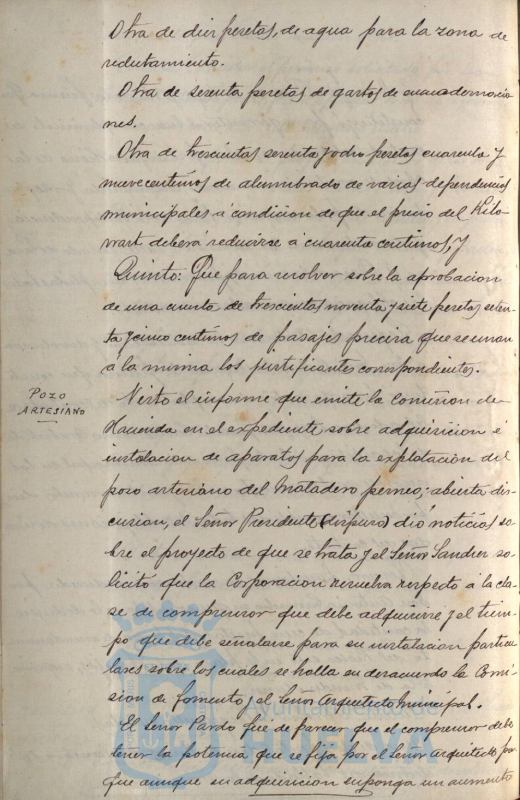 Otra de diez pesetas, de agua para la zona de
reclutamiento.
Otra de sesenta pesetas de gastos de encuadernacio
nes.
Otra de trescientas sesenta y ocho pesetas cuarenta y
nueve centimos de alumbrado de varias dependencias
municipales á condicion de que el precio del Kilo-
watt deberá reducirse á cuarenta centimos, y
Quinto: Que para resolver sobre la aprobacion
de una cuenta de trescientas noventa y siete pesetas seten-
ta y cinco centimos de pasajes precisa que se unan
a la misma los justificantes correspondientes.
POZO
ARTESIANO
Visto el informe que emite la Comision de
Hacienda en el expediente sobre adquisicion é
instalacion de aparatos para la explotacion del
pozo artesiano del Matadero perneo; abierta dis-
cusion, el Señor Presidente dió noticias so-
bre el proyecto de que se trata y el Señor Sandier so-
licitó que la Corporacion resuelva respecto á la cla-
se de compresor que debe adquirirse y el tiem-
po que debe señalarse para su instalacion particu-
lares sobre los cuales se halla en desacuerdo la Comi-
sion de fomento y el Señor Arquitecto municipal.
El Señor Pardo fué de parecer que el compresor debe
tener la potencia que se fija por el Señor Arquitecto por-
que aunque su adquisicion suponga un aumento
Ayuntamiento de
HUELVA